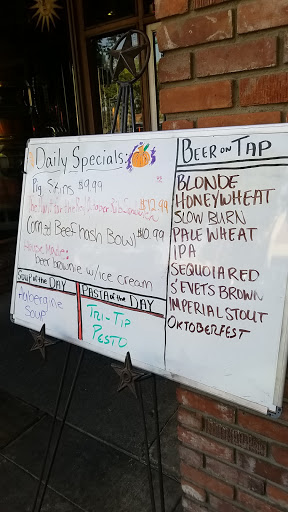 Daily Specials:
Pig Skins $9.99
$12.99
Corned Beef hash Bowl $10.99
House Made:
beer brownie w/ice cream
SOUP of the DAY
Aubergine
Soup
PASTA of the DAY
TRI-TIP
PESTO
BEER ON TAP
BLONDE
HONEYWHEAT
SLOW BURN
PALE WHEAT
IPA
SEQUOIA RED
S'EVETS BROWN
IMPERIAL STOUT
OKTOBERFEST